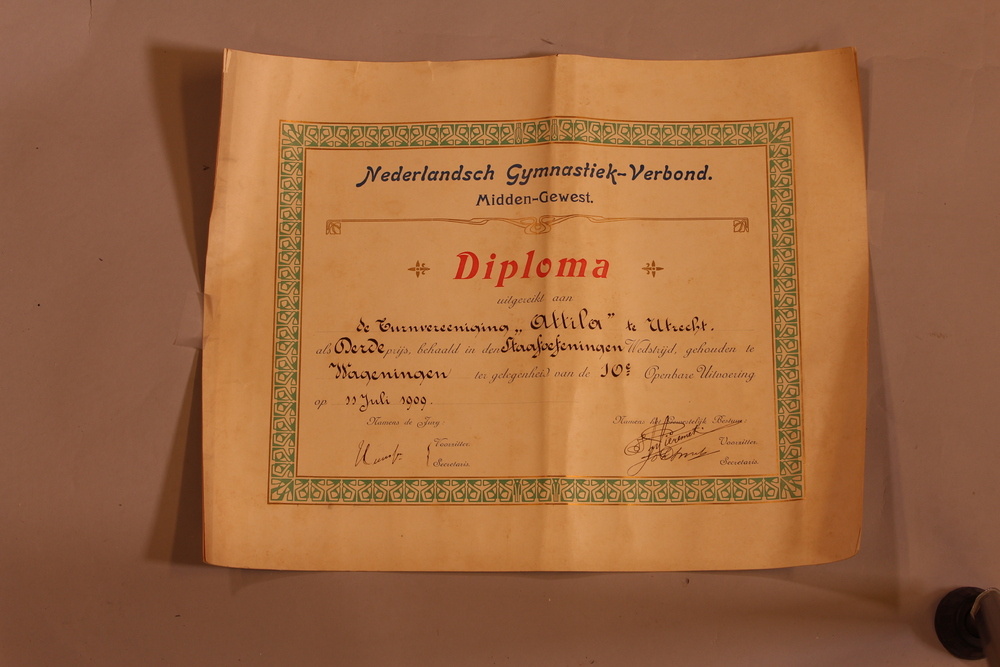 Nederlandsch Gymnastiek-Verbond.
Midden-Gewest.
Diploma
uitgereikt aan
de Turnvereeniging „Attila” te Utrecht.
als Derde prijs, behaald in den Staafoefeningen Wedstrijd, gehouden te
Wageningen ter gelegenheid van de 10e Openbare Uitvoering
op 11 Juli 1909.
Namens de Jury: Namens het Gewestelijk Bestuur:
Voorzitter. Voorzitter.
Secretaris. Secretaris.